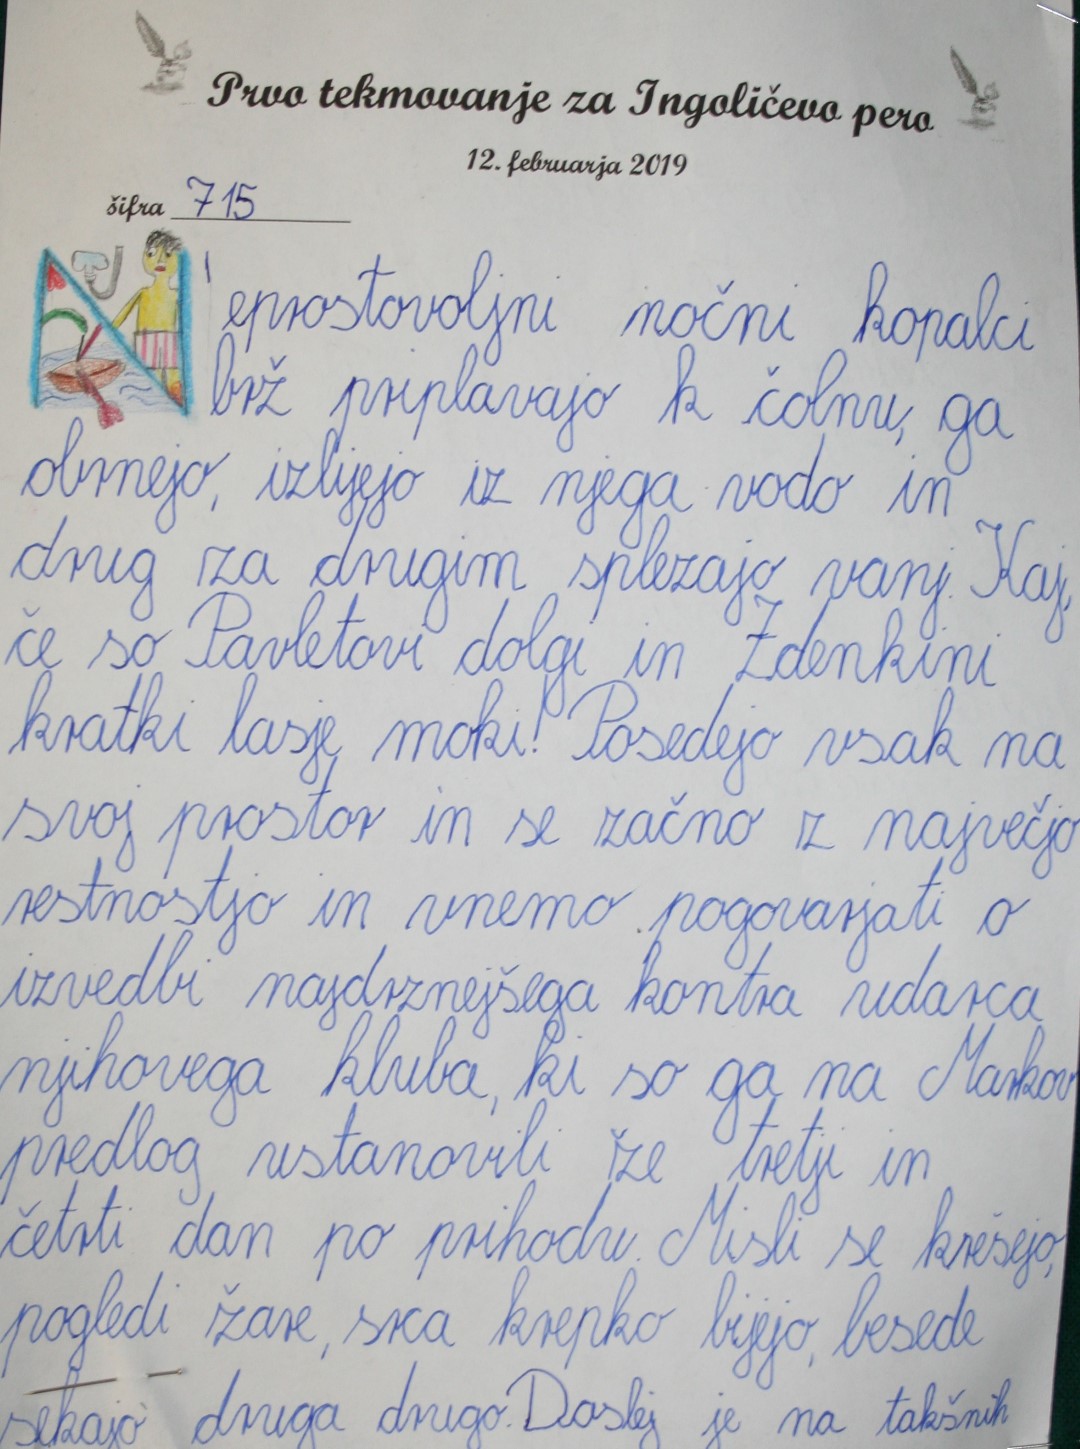 Prvo tekmovanje za Ingoličevo pero
12. februarja 2019
šifra 715
Neprostovoljni nočni kopalci
brž priplavajo k čolnu, ga
obrnejo, izlijejo iz njega vodo in
drug za drugim splezajo vanj. Kaj,
če so Pavletovi dolgi in Zdenkini
kratki lasje moki! Posedejo vsak na
svoj prostor in se začno z največjo
restnostjo in vnemo pogovarjati o
izvedbi najdrznejšega kontra udarca
njihovega kluba, ki so ga na Markov
predlog ustanovili že tretji in
četrti dan po prihodu. Misli se krešejo,
pogledi žare, srca krepko bijejo, besede
sekajo druga drugo. Doslej je na takšnih